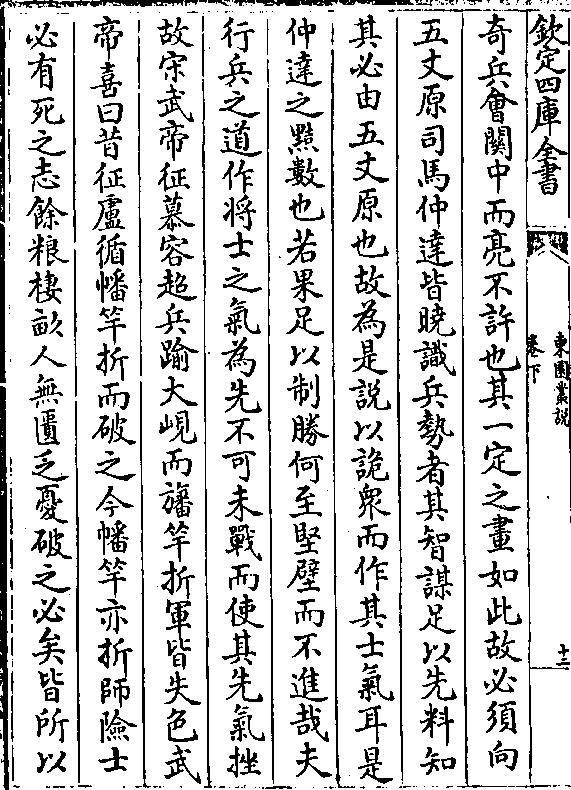 欽定四庫全書
東園叢説
卷下
十三
奇兵㑹關中而亮不許也其一定之畫如此故必須向
五丈原司馬仲達皆曉識兵勢者其智謀足以先料知
其必由五丈原也故為是說以詭衆而作其士氣耳是
仲達之㸃數也若果足以制勝何至堅壁而不進哉夫
行兵之道作将士之氣為先不可未戰而使其先氣挫
故宋武帝征慕容超兵踰大峴而旛竿折軍皆失色武
帝喜曰昔征盧循幡竿折而破之今幡竿亦折師險士
必有死之志餘粮棲畝人無匱乏憂破之必矣皆所以